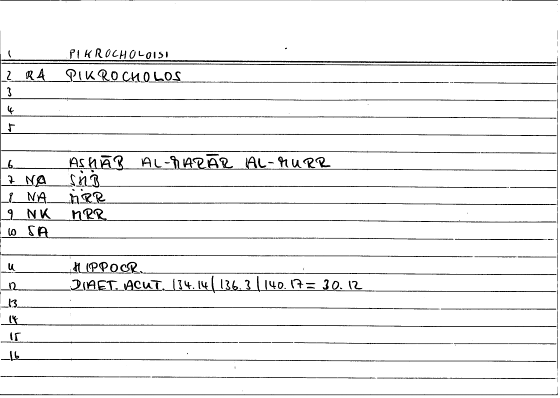 1 PIKROCHOLOISI
2 RA PIKROCHOLOS
3
4
5
6 ASḤĀB AL-MARĀR AL-MURR
7 NA SḤB
8 NA MRR
9 NK MRR
10 SA
11 HIPPOCR.
12 DIAET. ACUT. 134.14 | 136.3 | 140.17 = 30.12
13
14
15
16